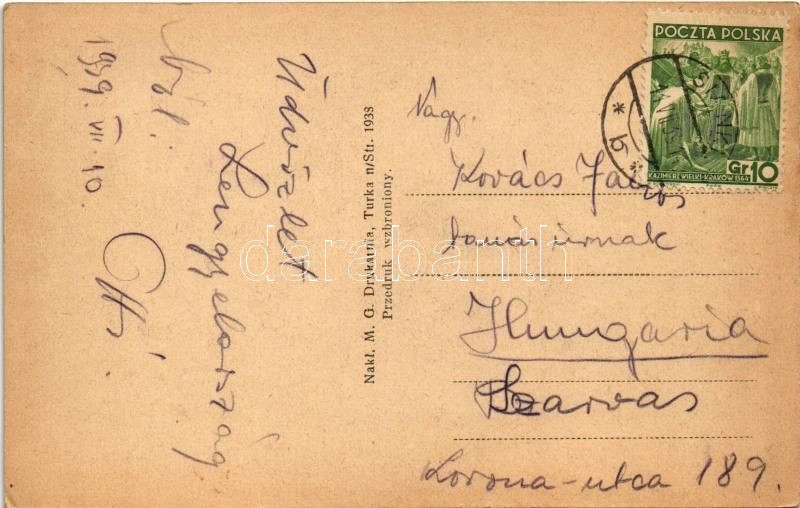 Üdvözlet
Lengyelország
ból.
1939. VII. 10.
Nakł. M. G. Drukarnia, Turka n/Str. 1938
Przedruk wzbroniony.
POCZTA POLSKA
KAZIMIERZ WIELKI-KRAKÓW 1364
Gr. 10
* b *
Nagys.
Kovács János
tanár úrnak
Hungaria
Szarvas
Korona-utca 189.
darabanth